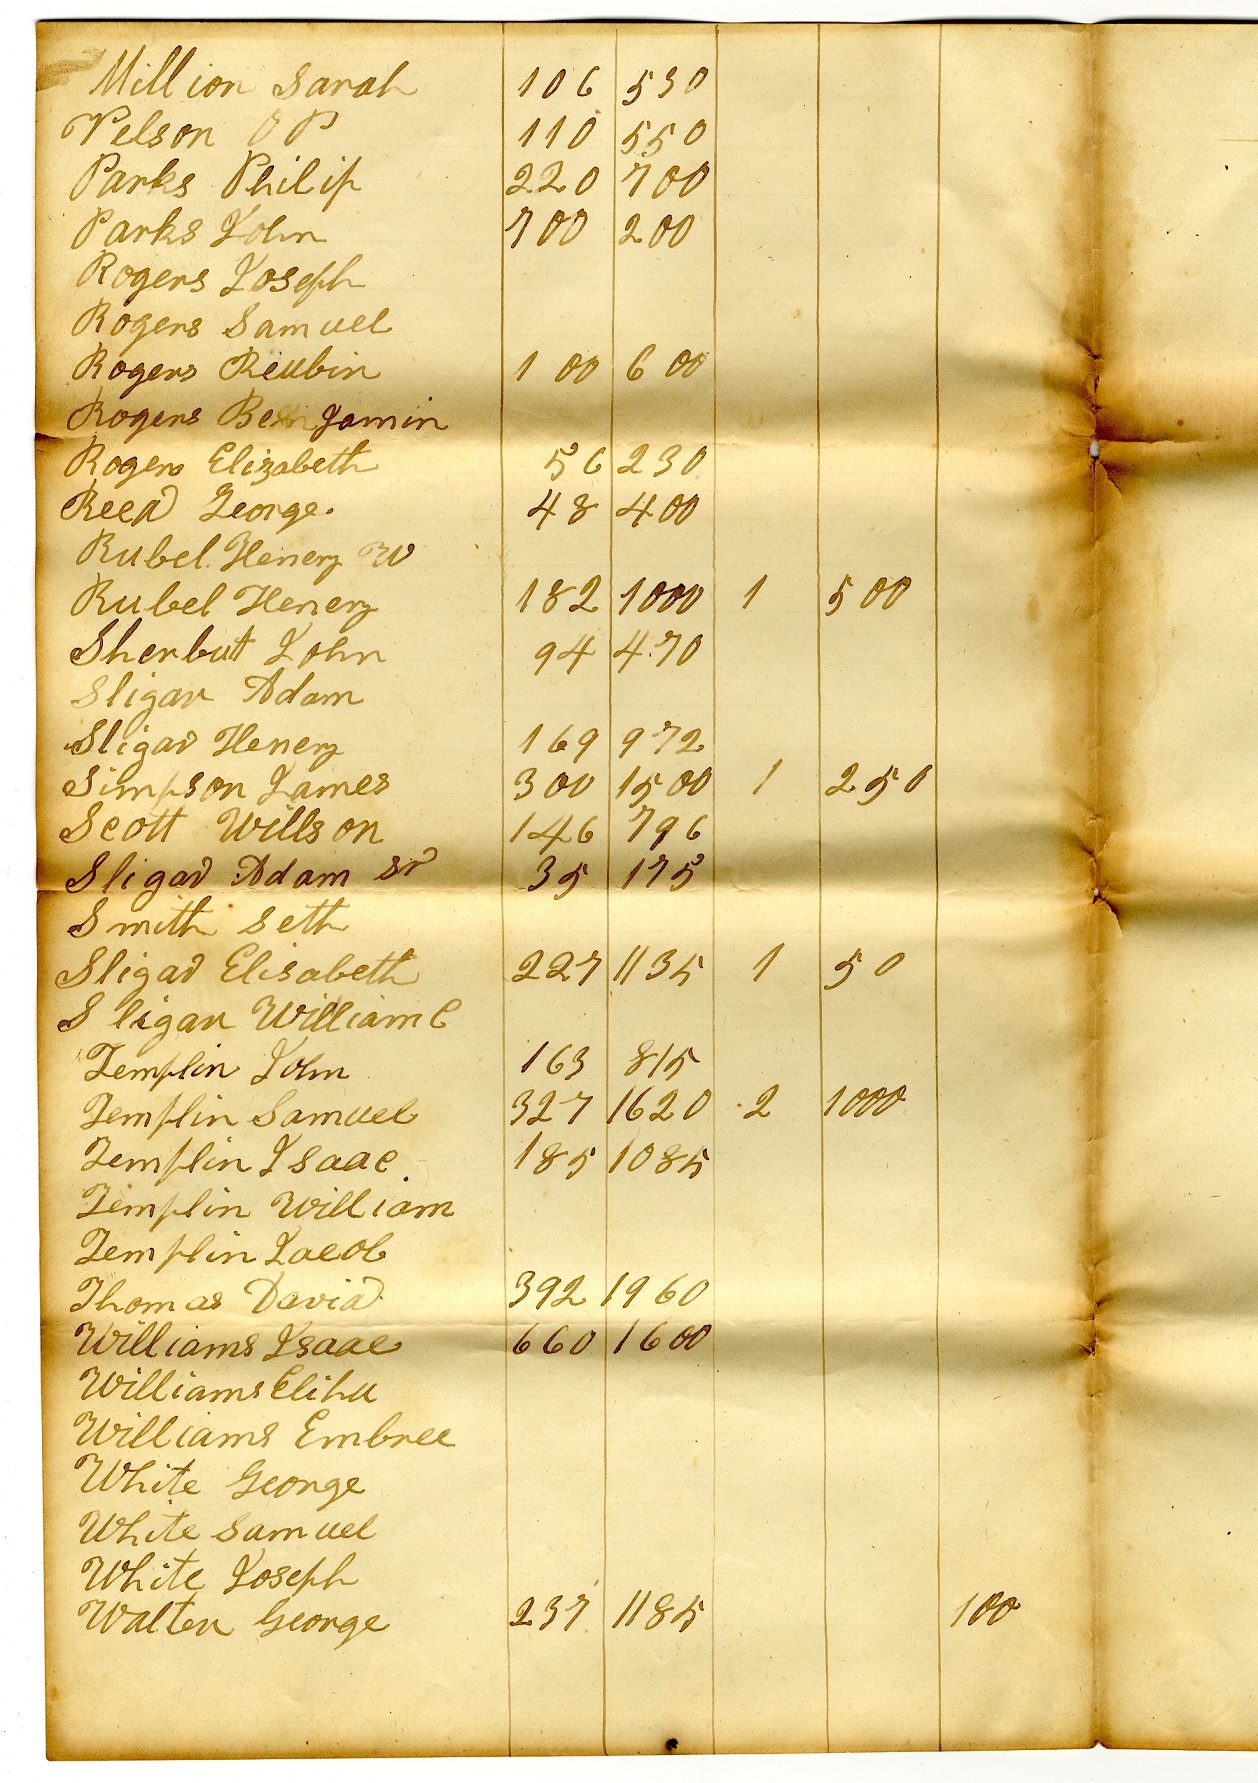 Million Sarah 106 530
Nelson O P 110 550
Parks Philip 220 700
Parks John 700 200
Rogers Joseph
Rogers Samuel
Rogers Reubin 100 600
Rogers Benjamin
Rogers Elizabeth 56 230
Reed George. 48 400
Rubel Henery W
Rubel Henery 182 1000 1 500
Sherbut John 94 470
Sligar Adam
Sligar Henery 169 972
Simpson James 300 1500 1 250
Scott Willson 146 796
Sligar Adam sr 35 175
Smith Seth
Sligar Elisabeth 227 1135 1 50
Sligar William C
Templin John 163 815
Templin Samuel 327 1620 2 1000
Templin Isaac 185 1085
Templin William
Templin Jacob
Thomas David 392 1960
Williams Isaac 660 1600
Williams Elihu
Williams Embree
White George
White Samuel
White Joseph
Walter George 237 1185 100